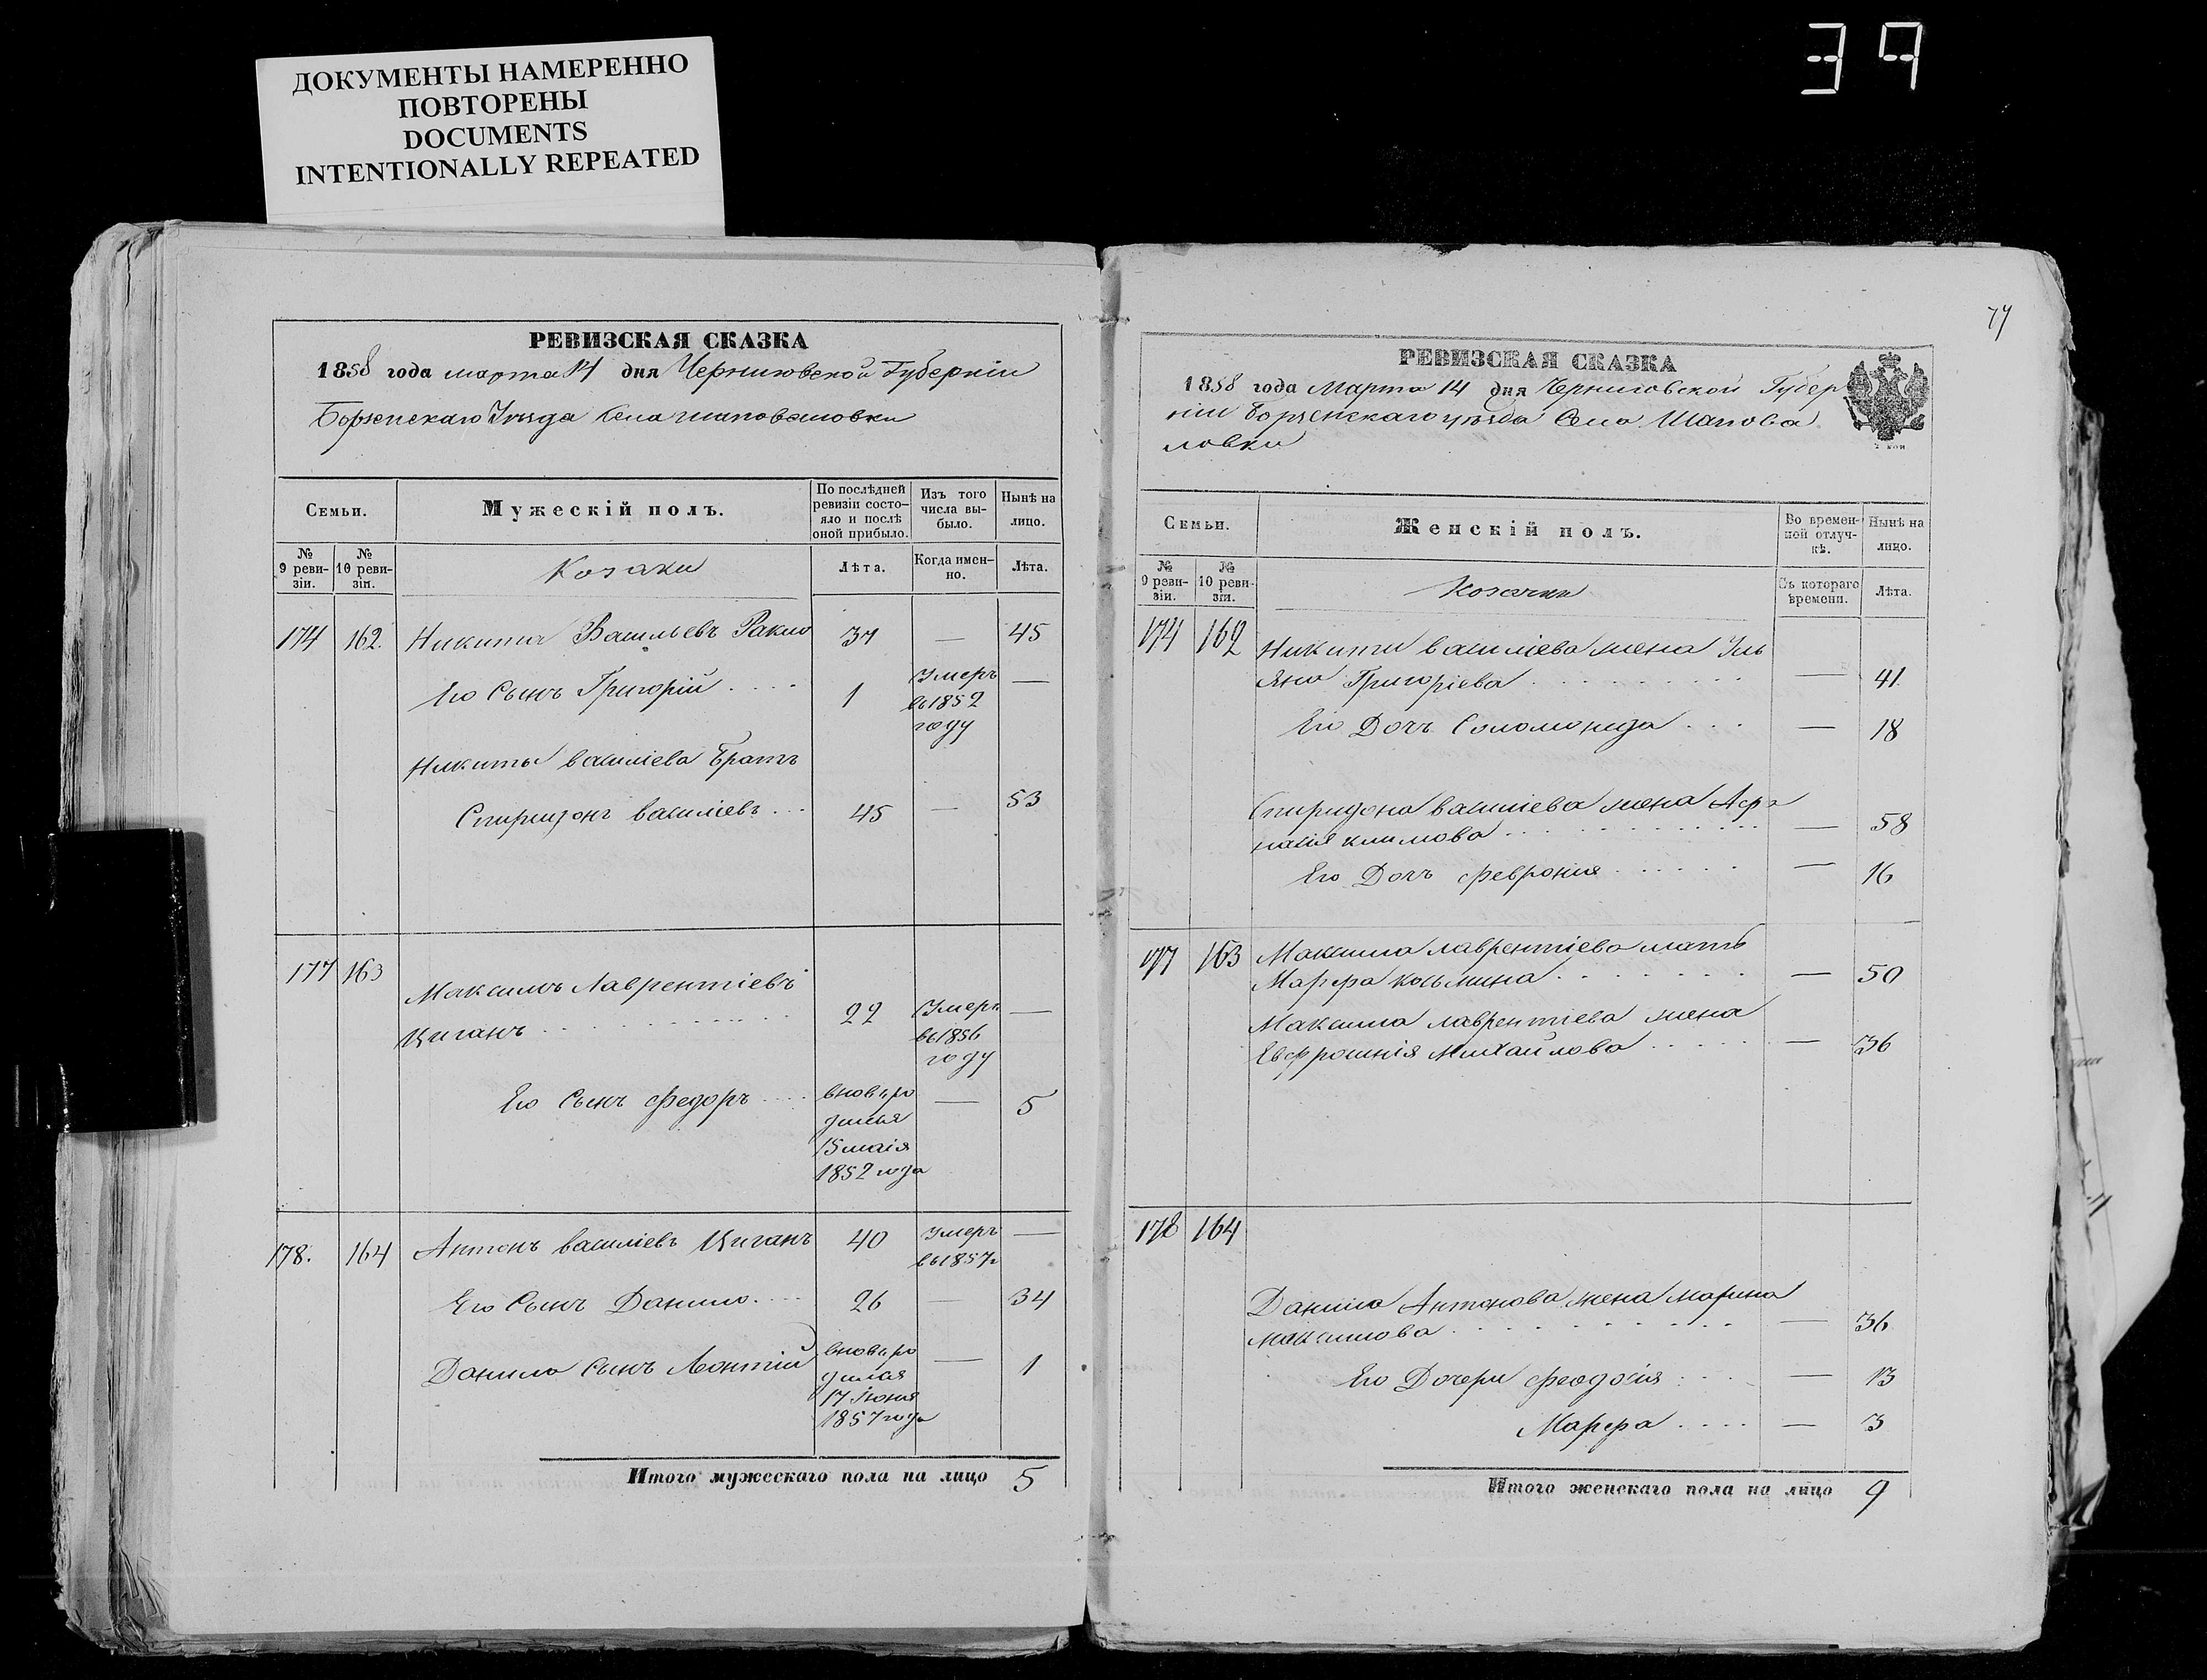 ДОКУМЕНТЫ НАМЕРЕННО
ПОВТОРЕНЫ
DOCUMENTS
INTENTIONALLY REPEATED
39
РЕВИЗСКАЯ СКАЗКА
1858 года марта 14 дня Черниговской Губерніи
Борзенскаго Уѣзда Села шаповаловки
Семьи.
Мужескій полъ.
По послѣдней ревизіи состояло и послѣ оной прибыло.
Изъ того числа выбыло.
Нынѣ на лицо.
№ 9 ревизіи.
№ 10 ревизіи.
Козаки
Лѣта.
Когда именно.
Лѣта.
174 162. Никита Васильевъ 37 — 45
Его Сынъ Григорій 1 Умеръ —
въ 1852
году
Никиты василіева Братъ
Спиридонъ василіевъ 45 — 53
177 163
Максимъ Лаврентіевъ
Циганъ 22 Умеръ —
въ 1856
году
Его Сынъ Федоръ вновь ро — 5
дился
15 маія
1852 года
178. 164 Антонъ василіевъ Циганъ 40 Умеръ —
въ 1857 г
Его Сынъ Данило 26 — 34
Данила Сынъ Леонтій вновь ро — 1
дился
17 Іюня
1857 года
Итого мужескаго пола на лицо 5
77
РЕВИЗСКАЯ СКАЗКА
1858 года Марта 14 дня Черниговской Губер
ніи Борзенскаго уѣзда Села Шапова
ловки
Семьи.
Женскій полъ.
Во временной отлучкѣ.
Нынѣ на лицо.
№ 9 ревизіи.
№ 10 ревизіи.
Козачки
Съ котораго времени.
Лѣта.
174 162 Никиты василіева жена Уль
яна Григоріева — 41
Его Дочь Соломонида — 18
Спиридона василіева жена Афа
насія климова — 58
Его Дочь Февронія — 16
177 163 Максима лаврентіева мать
Марфа козьмина — 50
Максима лаврентіева жена
Евфросинія Михайлова — 36
178 164
Данила Антонова жена марина
максимова — 36
Его Дочери Феодосія — 13
Марфа — 3
Итого женскаго пола на лицо 9